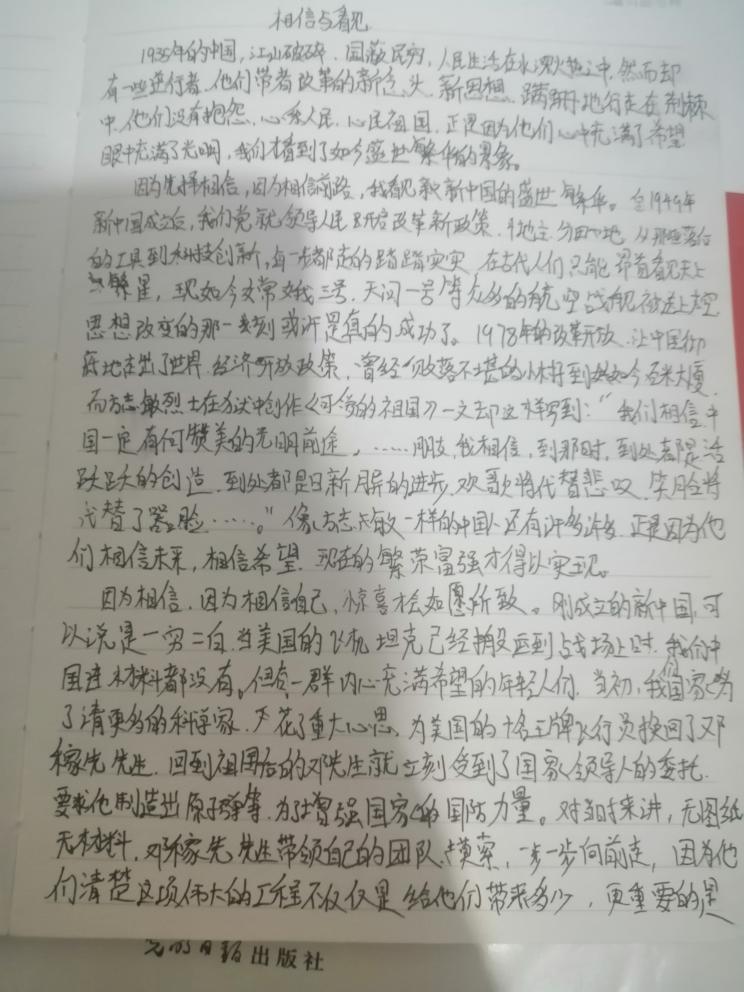 相信与看见
1935年的中国,江山破碎,国破民穷,人民生活在水深火热之中,然而却
有一些逆行者,他们带着改革的新念头、新思想,蹒跚地行走在荆棘
中,他们没有抱怨,心系人民,心民祖国,正是因为他们心中充满了希望
眼中充满了光明,我们才看到了如今盛世繁华的景象。
因为选择相信,因为相信前路,我看见新中国的盛世繁华。自1949年
新中国成立后,我们党就领导人民开启改革新政策,斗地主,分田地,从那些落后
的工具到科技创新,每一步都走的踏踏实实,在古代人们只能昂首看见天上
繁星,现如今嫦娥三号,天问一号等众多的航空战舰被送上太空
思想改变的那一刻或许是真的成功了。1978年的改革开放,让中国
地走出了世界,经济开放政策,曾经败落不堪的小村到如今百米大厦,
而方志敏烈士在狱中创作《可爱的祖国》一文却这样写到:“我们相信,中
国一定有个可赞美的光明前途,……朋友,我相信,到那时,到处都是活
跃跃的创造,到处都是日新月异的进步,欢歌将代替悲叹,笑脸将
代替了哭脸……。”像方志敏一样的中国人还有许多许多,正是因为他
们相信未来,相信希望,现在的繁荣富强才得以实现。
因为相信,因为相信自己,惊喜才会如愿所致。刚成立的新中国,可
以说是一穷二白,当美国的飞机,坦克已经搬运到战场上时,我们中
国连材料都没有。但有一群内心充满希望的年轻人们,当初,我国家为
了请更多的科学家,花了重大心思,为美国的十名王牌飞行员换回了邓
稼先先生,回到祖国后的邓先生就立刻受到了国家领导人的委托,
要求他制造出原子弹等,为了增强国家的国防力量。对当时来讲,无图纸
无材料,邓稼先先生带领自己的团队摸索,一步一步向前走,因为他
们清楚这项伟大的工程不仅仅是给他们带来多少,更重要的是
光明日报出版社